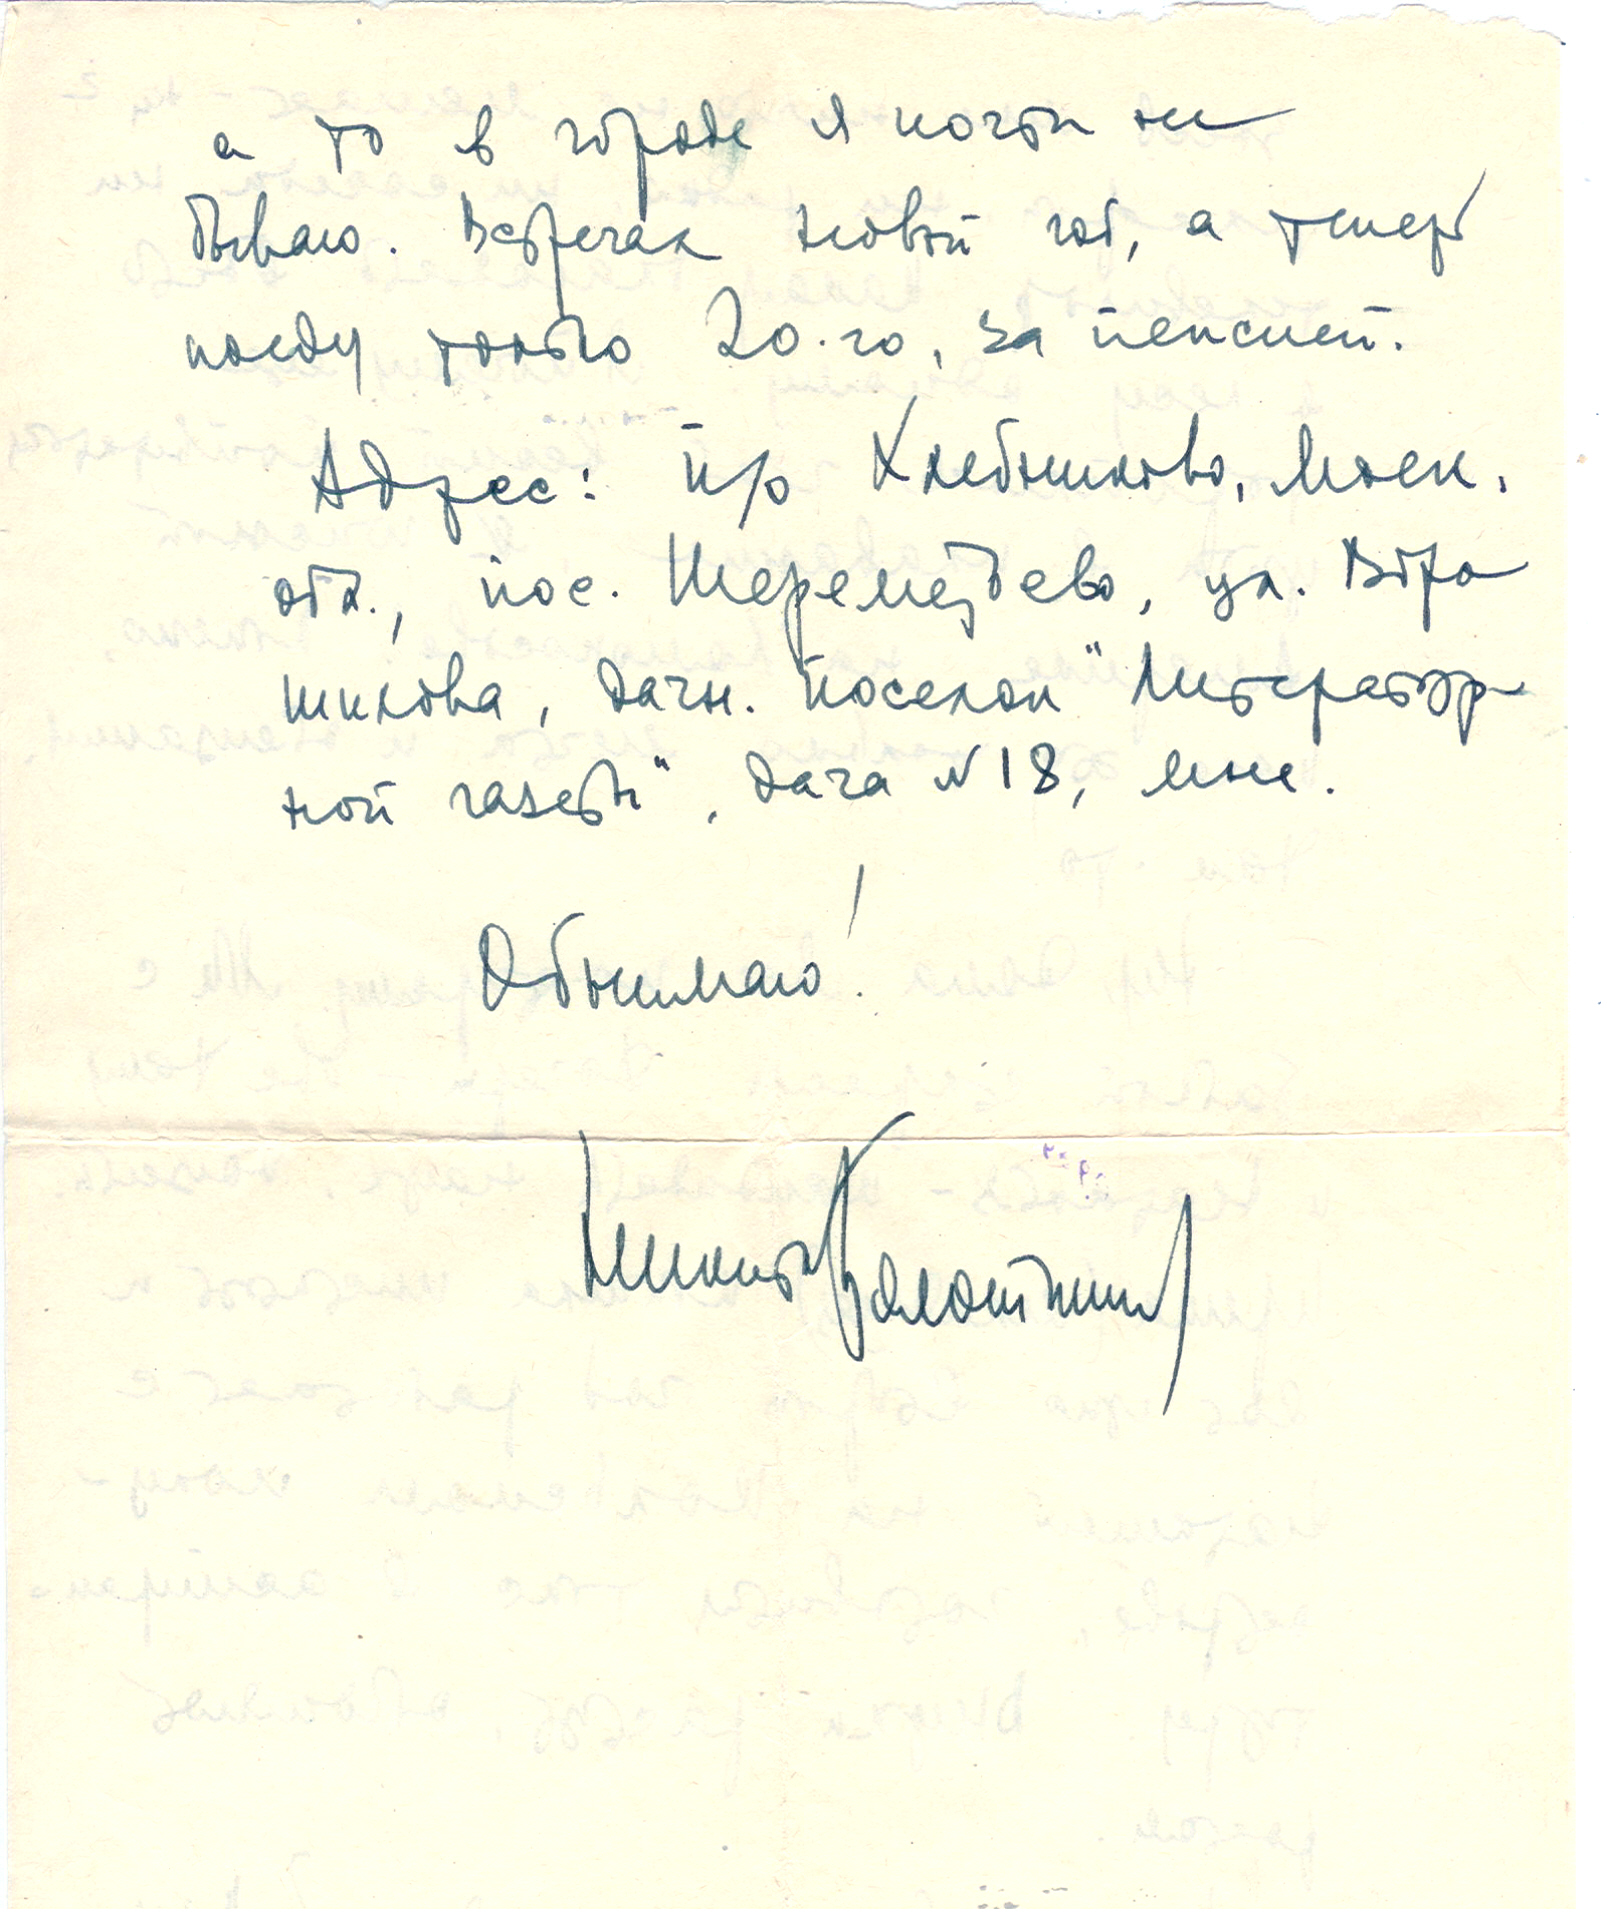 а то в городе я почти не
бываю. Встречал Новый год, а теперь
поеду только 20-го, за пенсией.
Адрес: п/о Хлебниково, Моск.
обл., пос. Шереметьево, ул.
дачн. поселок "Литератур-
ной газеты", дача №18, мне.
Обнимаю!